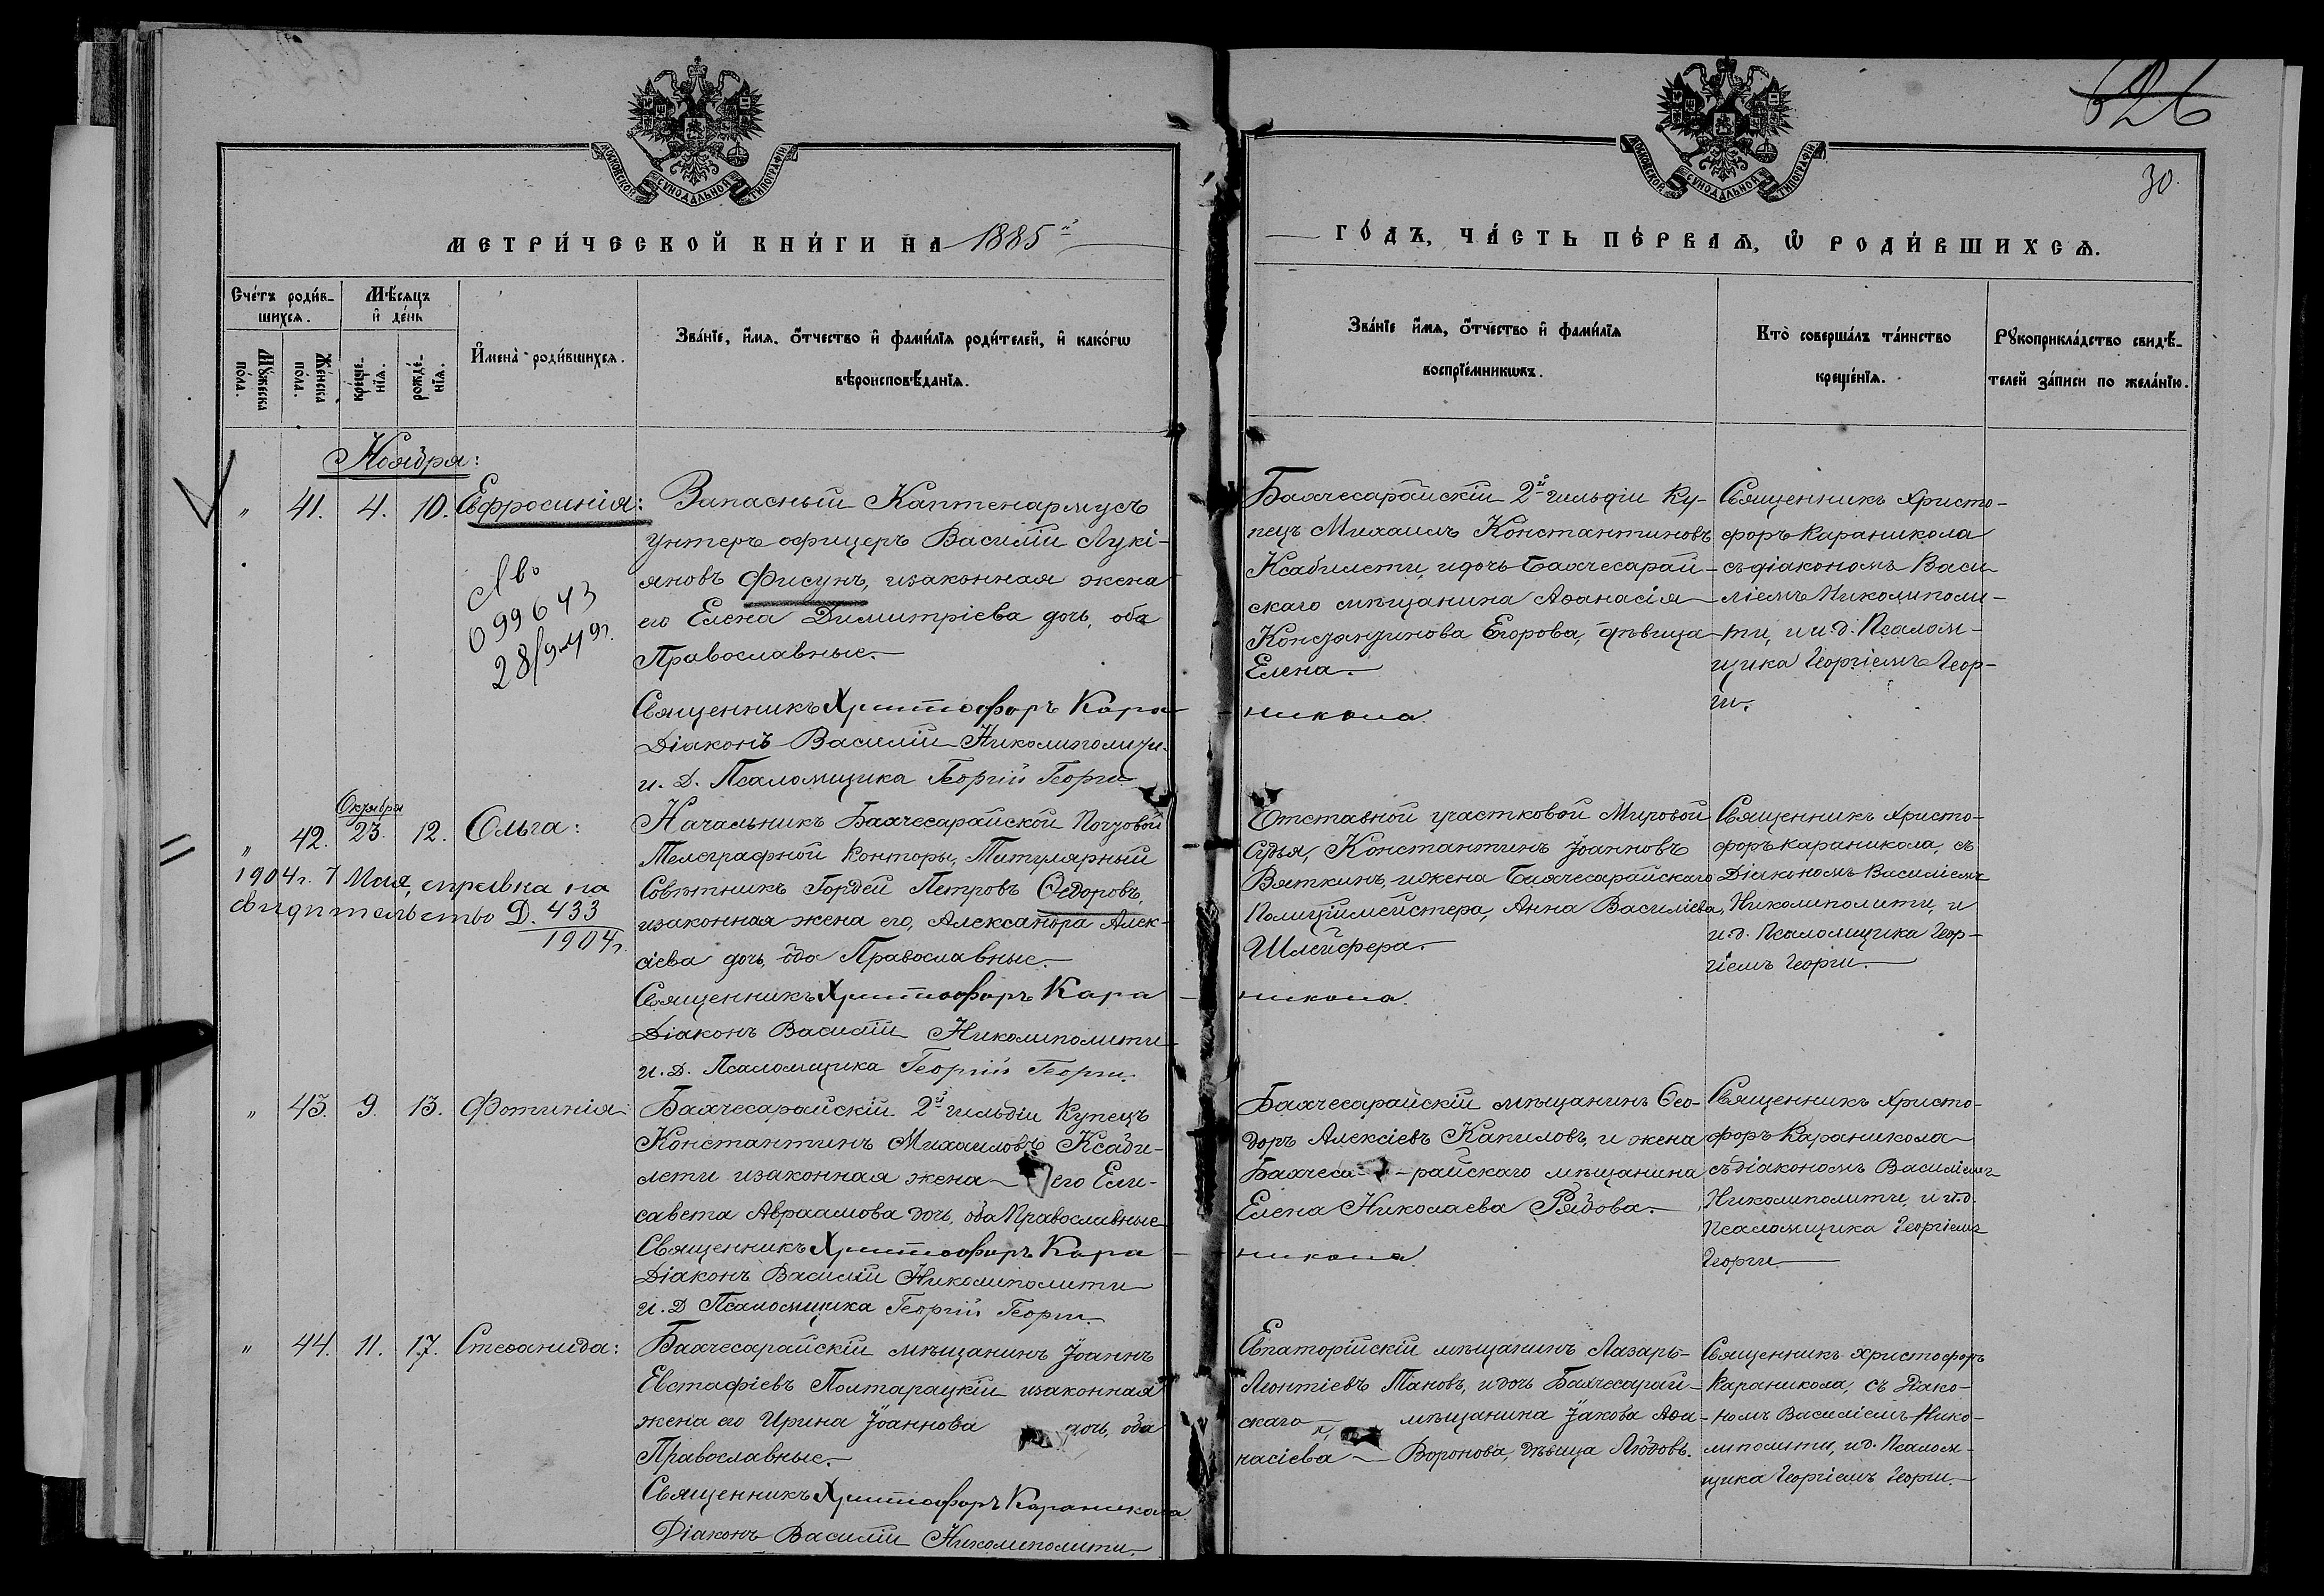 626
30.
МОСКОВСКОЙ СѴНОДАЛЬНОЙ ТИПОГРАФІИ
МОСКОВСКОЙ СѴНОДАЛЬНОЙ ТИПОГРАФІИ
МЕТРИ́ЧЕСКОЙ КНИ́ГИ НА 1885й
ГО́ДЪ, ЧА́СТЬ ПЕ́РВАѦ, Ѽ РОДИ́ВШИХСѦ.
Сче́тъ роди́в-
шихсѧ.
Мѣ́сѧцъ
и҆ де́нь
Мꙋ́жеска
по́ла.
Же́нска
по́ла.
креще́-
нїѧ.
рожде́-
нїѧ.
И҆мена̀ роди́вшихсѧ.
Зва́нїе, и҆́мѧ, ѻ҆́тчество и҆ фами́лїѧ роди́телей, и҆ како́гѡ
вѣроисповѣ́данїѧ.
Зва́нїе и҆́мѧ, ѻ҆́тчество и҆ фами́лїѧ
воспрїе́мникѡвъ.
Кто̀ соверша́лъ та́инство
креще́нїѧ.
Рꙋкоприкла́дство свидѣ́-
телей за́писи по жела́нїю.
Ноября:
" 41. 4. 10. Ефросинія:
099643
28/
Запасный Каптенармусъ
унтеръ офицеръ Василій Лукі-
яновъ Фисунъ, изаконная жена
его Елена Димитріева дочь, оба
Православные.
Священникъ Христофоръ Кара-
никола
Діаконъ Василій Николиполити
и. д. Псаломщика Георгій Георги
Бахчесарайскій 2й гильдіи Ку-
пецъ Михаилъ Константиновъ
Ксабилети, идочь Бахчесарай-
скаго мѣщанина Аѳанасія
Константинова Егорова, дѣвица
Елена.
Священникъ Христо-
форъ Караникола
съ діакономъ Васи
ліемъ Николиполи-
ти, и и.д. Псалом-
щика Георгіемъ Геор-
ги.
Октября
" 42. 23. 12. Ольга:
1904г. 7 Мая, справка на
свидѣтельство Д. 433
1904г.
Начальникъ Бахчесарайской Почтовой
Телеграфной Конторы, Титулярный
Совѣтникъ Гордѣй Петровъ Ѳедоровъ,
изаконная жена его, Александра Алек-
сіева дочь, оба Православные.
Священникъ Христофоръ Кара
никола
Діаконъ Василій Николиполити
и. д. Псаломщика Георгій Георги.
Отставной участковой Мировой
Судья, Константинъ Іоанновъ
Вяткинъ, ижена Бахчесарайскаго
Полиціймейстера, Анна Василіева
Шлейфера.
Священникъ Христо-
форъ Караникола, съ
Діакономъ Василіемъ
Николиполити, и
и.д. Псаломщика Геор-
гіемъ Георги.
" 43. 9. 13. Фотинія
Бахчесарайскій 2й гильдіи Купецъ
Константинъ Михаиловъ Ксаби-
лети изаконная жена его Ели-
савета Авраамова дочь, оба Православные
Священникъ Христофоръ Кара
никола
Діаконъ Василій Николиполити
и. д Псаломщика Георгій Георги.
Бахчесарайскій мѣщанинъ Ѳео-
доръ Алексіевъ Капиловъ, и жена
Бахчеса-райскаго мѣщанина
Елена Николаева Рядова.
Священникъ Христо-
форъ Караникола
съ діакономъ Василіемъ
Николиполити, и и.д.
Псаломщика Георгіемъ
Георги
" 44. 11. 17. Стефанида:
Бахчесарайскій мѣщанинъ Іоаннъ
Евстафіевъ Полтарацкій изаконная
жена его Ирина Іоаннова дочь, оба
Православные.
Священникъ Христофоръ Караникола
Діаконъ Василій Николиполити
Евпаторійскій мѣщанинъ Лазарь
Леонтіевъ Тановъ, идочь Бахчесарай-
скаго мѣщанина Іакова Аѳа-
насіева Воронова, дѣвица Любовь.
Священникъ Христофоръ
Караникола, съ Діако-
номъ Василіемъ Нико-
липолити, и.д. Псалом-
щика Георгіемъ Георги.